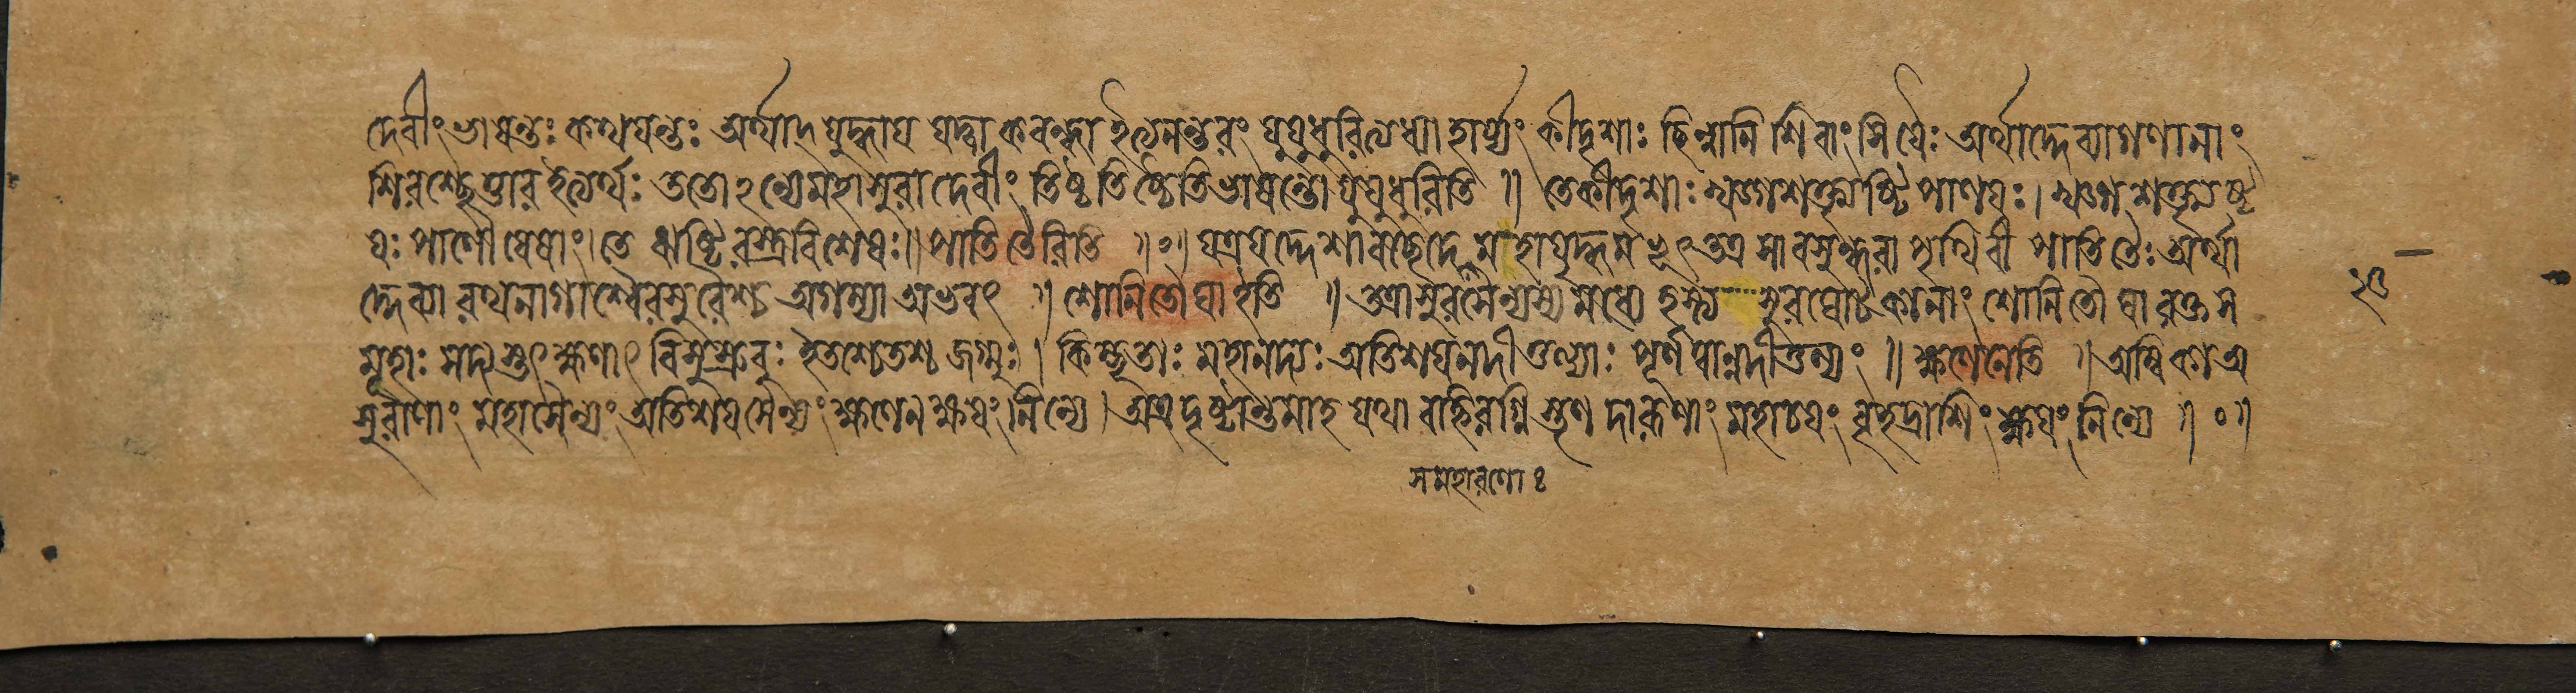 দেবীং ভাষন্তঃ কথয়ন্তঃ অর্থাদ্ যুদ্ধায় যদ্বা কবন্ধা ইত্যনন্তরং যুযুধুরিত্যধ্যাহার্য্যং কীদৃশাঃ ছিন্নানি শিরাংসি যৈঃ অর্থাদ্দেব্যাগণানাং
শিরশ্ছেত্তার ইত্যর্থঃ ততোঽন্যেমহাসুরা দেবীং তিষ্ঠতিষ্ঠেতিভাষন্তো যুযুধুরিতি ॥ তেকীদৃশাঃ খড্গশক্ত্যৃষ্টিপাণয়ঃ। খড্গশক্ত্যৃষ্ট
য়ঃ পাণৌ যেষাং। তে ঋষ্টিরস্ত্রবিশেষঃ॥ পাতিতৈরিতি ॥০॥ যত্রযদ্দেশাবচ্ছেদেন মহাযুদ্ধমভূৎ তত্র সা বসুন্ধরা পৃথিবী পাতিতৈঃ অর্থা
দ্দেব্যা রথনাগাশ্বৈরসুরৈশ্চ অগম্যা অভবৎ ॥ শোনিতৌঘা ইতি ॥ তত্রাসুরসৈন্যস্য মধ্যে হস্ত্য সুরঘোটকানাং শোনিতৌঘা রক্তস
মূহাঃ সদ্যস্তৎক্ষণাৎ বিসুস্রুবুঃ ইতশ্চেতশ্চ জগ্মুঃ। কিম্ভূতাঃ মহানদ্যঃ অতিশয়নদীতুল্যাঃ পূর্ণত্বান্নদীতুল্যং ॥ ক্ষণেনেতি ॥ অম্বিকা অ
সুরাণাং মহাসৈন্যং অতিশয়সৈন্যং ক্ষণেন ক্ষয়ং নিন্যে। অত্র দৃষ্টান্তমাহ যথা বহ্নিরগ্নিস্তৃণদারূণাং মহাচয়ং বৃহদ্রাশিং ক্ষয়ং নিন্যে ॥০॥
সমহারণোঃ